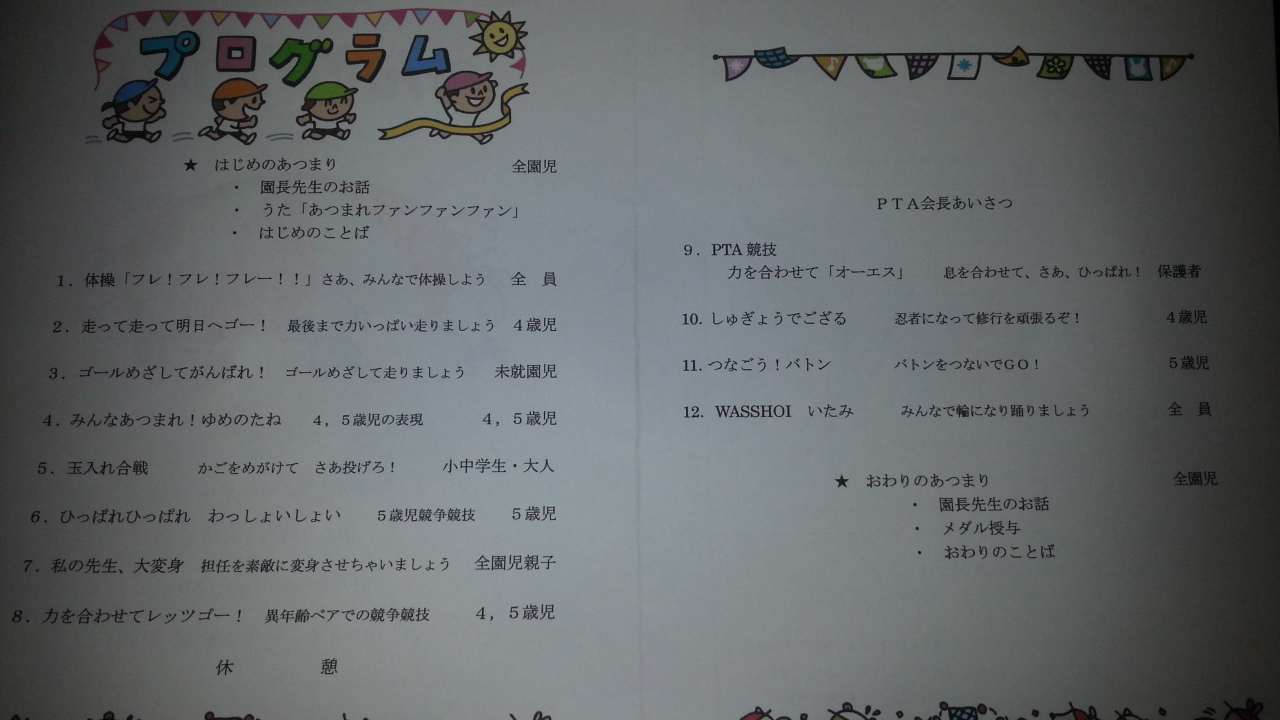 プログラム
★　はじめのあつまり　全園児
・　園長先生のお話
・　うた「あつまれファンファンファン」
・　はじめのことば
１．体操「フレ！フレ！フレー！！」さあ、みんなで体操しよう　全　員
２．走って走って明日へゴー！　最後まで力いっぱい走りましょう　４歳児
３．ゴールめざしてがんばれ！　ゴールめざして走りましょう　未就園児
４．みんなあつまれ！ゆめのたね　４，５歳児の表現　４，５歳児
５．玉入れ合戦　かごをめがけて　さあ投げろ！　小中学生・大人
６．ひっぱれひっぱれ　わっしょいしょい　５歳児競争競技　５歳児
７．私の先生、大変身　担任を素敵に変身させちゃいましょう　全園児親子
８．力を合わせてレッツゴー！　異年齢ペアでの競争競技　４，５歳児
休　憩
ＰＴＡ会長あいさつ
９．PTA 競技
力を合わせて「オーエス」　息を合わせて、さあ、ひっぱれ！　保護者
10. しゅぎょうでござる　忍者になって修行を頑張るぞ！　４歳児
11. つなごう！バトン　バトンをつないでＧＯ！　５歳児
12. WASSHOI　いたみ　みんなで輪になり踊りましょう　全　員
★　おわりのあつまり　全園児
・　園長先生のお話
・　メダル授与
・　おわりのことば